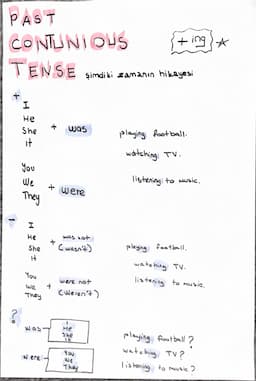 PAST
CONTUNIOUS
TENSE şimdiki zamanın hikayesi
+ ing
+
I
He
She
It
+ was
You
We
They
+ were
playing football.
watching TV.
listening to music.
-
I
He
She
It
+ was not
(wasn't)
You
We
They
+ were not
(weren't)
playing football.
watching TV.
listening to music.
?
was
I
He
She
It
were
You
We
They
playing football?
watching TV?
listening to music?